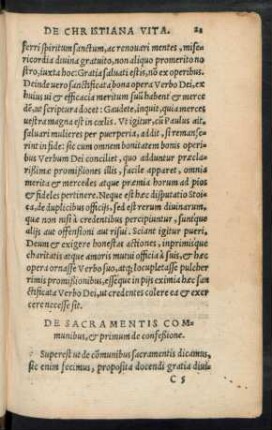 DE CHRISTIANA VITA. 21
ferri spiritum sanctum, ac renouari mentes, mise⸗
ricordia diuina gratuito, non aliquo promerito no
stro, iuxta hoc: Gratia saluati estis, nõ ex operibus.
Deinde uero sanctificata bona opera Verbo Dei, ex
huius ui & efficacia meritum suũ habent & merce
dẽ, ut scriptura docet: Gaudete, inquit, quia merces
uestra magna est in cœlis. Vt igitur, cũ Paulus ait,
saluari mulieres per puerperia, addit, si remanse⸗
rint in fide: sic cum omnem bonitatem bonis operi
bus Verbum Dei conciliet, quo adduntur præcla⸗
rißimæ promißiones illis, facile apparet, omnia
merita & mercedes atque præmia horum ad pios
& fideles pertinere. Neque est hæc disputatio Stoi⸗
ca, de duplicibus officijs, sed est rerum diuinarum,
quæ non nisi à credentibus percipiuntur, sunt́que
alijs aut offensioni aut risui. Sciant igitur pueri,
Deum & exigere honestas actiones, inprimísque
charitatis atque amoris mutui officia à suis, & hæc
opera ornasse Verbo suo, atq; locupletasse pulcher
rimis promißionibus, esséque in pijs eximia hæc san
ctificata Verbo Dei, ut credentes colere ea & exer
cere necesse sit.
DE SACRAMENTIS COM⸗
munibus, & primum de confeßione.
Superest ut de cõmunibus sacramentis dicamus,
sic enim fecimus, proposita docendi gratia diui⸗
C 5